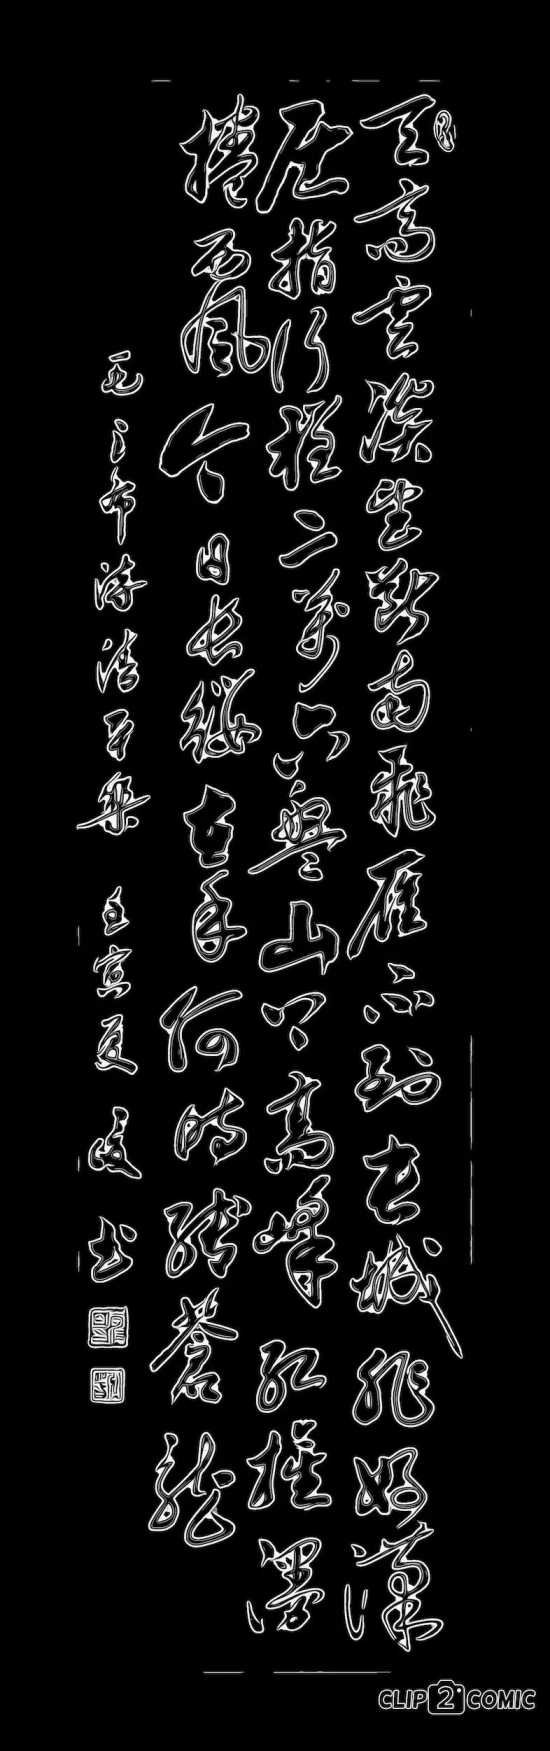 天高云淡望断南飛雁不到长城非好漢
屈指行程二萬六盤山上高峰红旗漫
捲西風今日长缨在手何时缚蒼龙
毛主席诗清平樂 壬寅夏 书
CLIP2COMIC